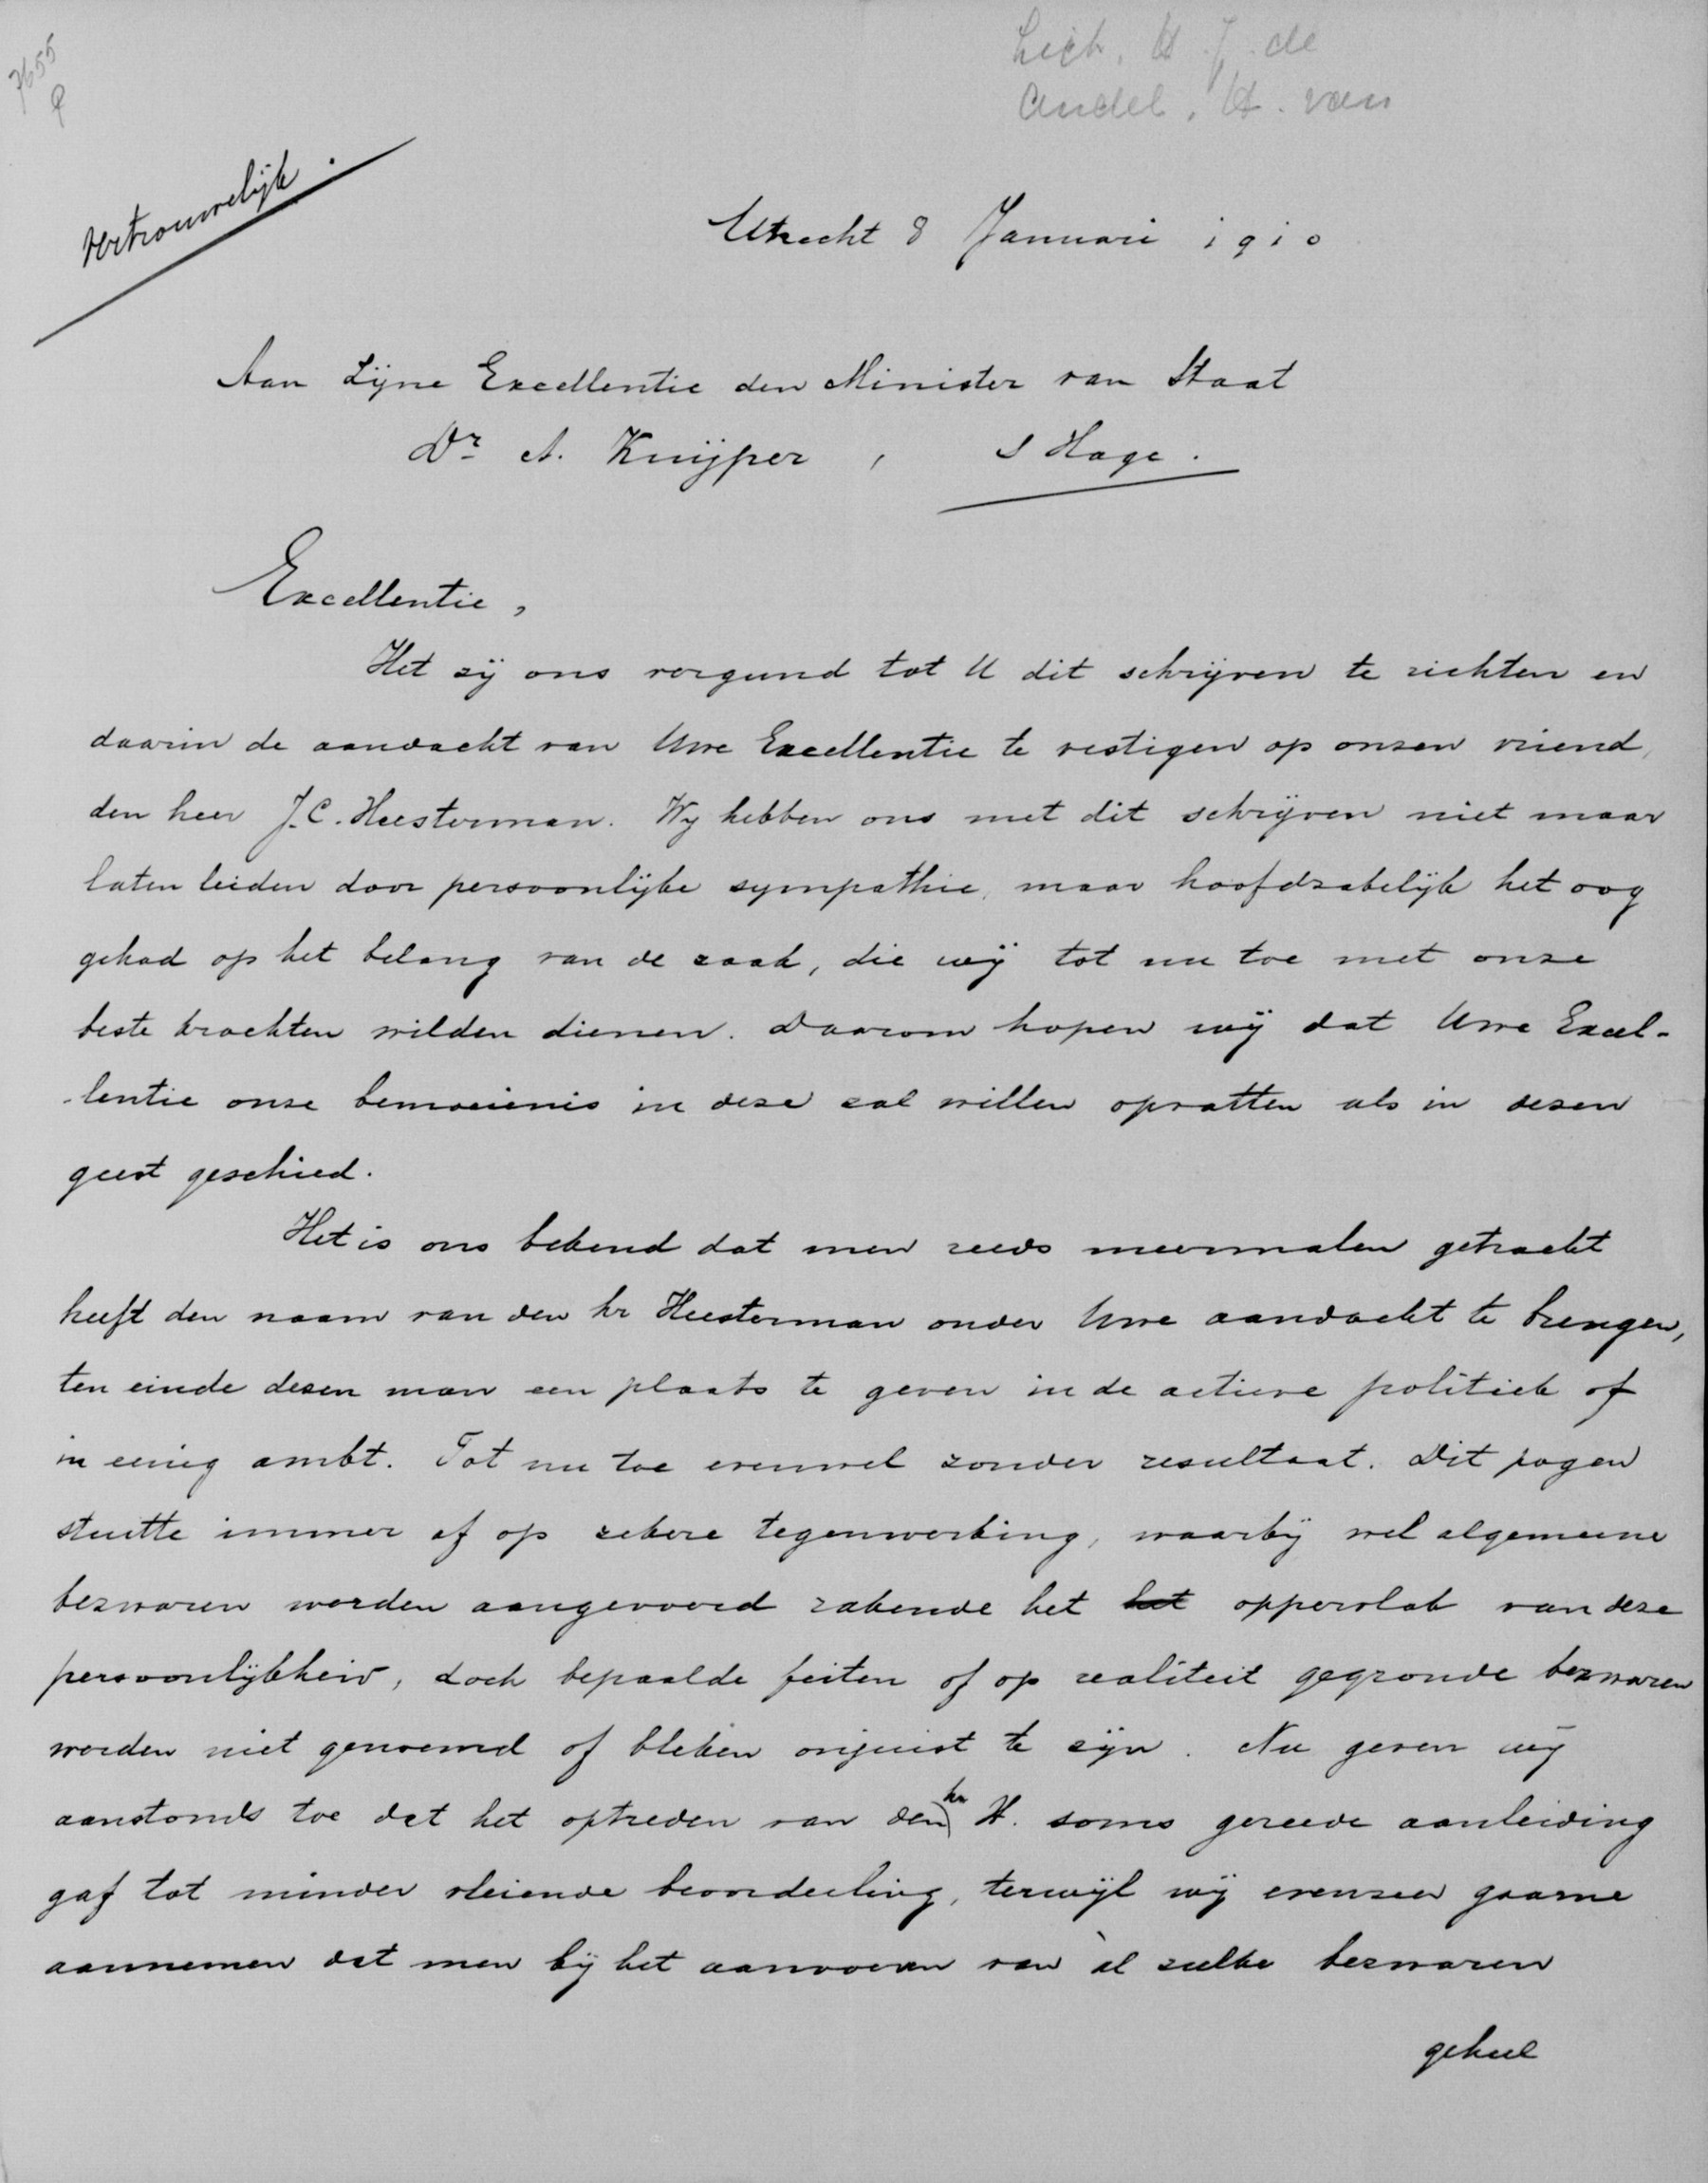 7655
Lich, H. J. de
Andel, H. van
Vertrouwelijk.
Utrecht 8 Januari 1910
Aan Zijne Excellentie den Minister van Staat
Dr. A. Kuijper, s Hage.
Excellentie,
Het zij ons vergund tot U dit schrijven te richten en
daarin de aandacht van Uwe Excellentie te vestigen op onzen vriend,
den heer J.C. Heesterman. Wij hebben ons met dit schrijven niet maar
laten leiden door persoonlijke sympathie, maar hoofdzakelijk het oog
gehad op het belang van de zaak, die wij tot nu toe met onze
beste krachten wilden dienen. Daarom hopen wij dat Uwe Excel-
-lentie onze bemoeienis in deze zal willen opvatten als in dezen
geest geschied.
Het is ons bekend dat men reeds meermalen getracht
heeft den naam van den hr Heesterman onder Uwe aandacht te brengen,
ten einde dezen man een plaats te geven in de actieve politiek of
in eenig ambt. Tot nu toe evenwel zonder resultaat. Dit pogen
stuitte immer af op zekere tegenwerking, waarbij wel algemeene
bezwaren worden aangevoerd rakende het het oppervlak van deze
persoonlijkheid, doch bepaalde feiten of op realiteit gegronde bezwaren
worden niet genoemd of bleken onjuist te zijn. Nu geven wij
aanstonds toe dat het optreden van den hr H. soms gereede aanleiding
gaf tot minder vleiende beoordeeling, terwijl wij evenzeer gaarne
aannemen dat men bij het aanvoeren van al zulke bezwaren
geheel